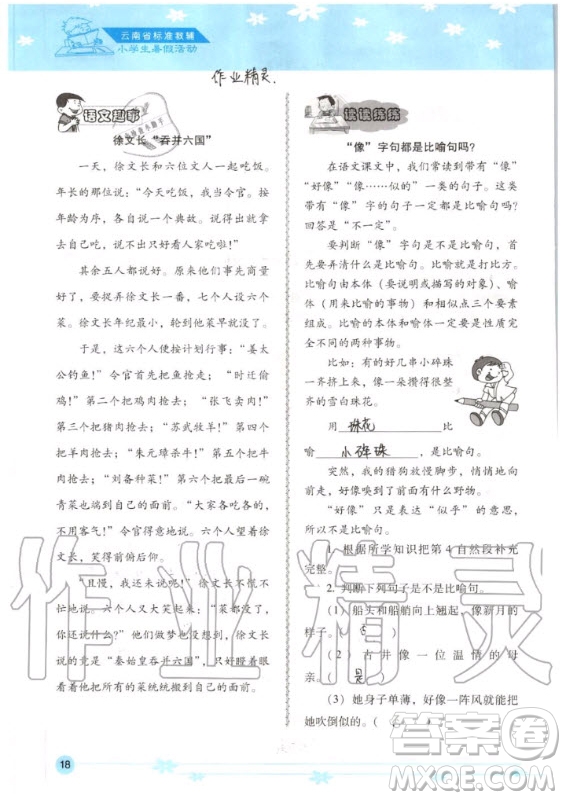 云南省标准教辅
小学生暑假活动
作业精灵.
语文趣事
徐文长“吞并六国”
一天，徐文长和六位文人一起吃饭。
年长的那位说：“今天吃饭，我做令官。按
年龄为序，各说一个典故。说得合情理，
自己吃，说不出来，只好看人家吃啦！”
其余五人都说好。原来他们事先商量
好了，要捉弄徐文长一番，七个人设了六个
菜。徐文长年纪最小，轮到他菜早就没了。
于是，这六个人便按计划行事：“姜太
公钓鱼！”令官首先把鱼抢走；“时迁偷
鸡！”第二个把鸡肉抢去；“张飞卖肉！”
第三个把猪肉抢走；“苏武牧羊！”第四个
把羊肉抢去；“朱元璋杀牛！”第五个把牛
肉抢去；“刘备种菜！”第六个把最后一碗
青菜也移到自己的面前。“大家各吃各的，
不用客气！”令官得意地说。六个人望着徐
文长，笑得前俯后仰。
“且慢，我还没说呢！”徐文长不慌不
忙地笑道。六个文人大笑起来：“菜都没有，
你还说什么？”他们做梦也没想到，徐文长
说的是：“秦始皇吞并六国！”只见他一边
说，一边把他们所有的菜统统搬到自己的
面前。
读读练练
“像”字句都是比喻句吗？
在语文课文中，我们常读到带有“像”
“好像”“像……似的”一类的句子。这类
带有“像”字的句子一定都是比喻句吗？
回答是“不一定”。
要判断“像”字句是不是比喻句，首
先要弄清什么是比喻。比喻就是打比方。
比喻句由本体（要说明或描写的对象）、喻
体（用来比喻的事物）和相似点三个要素
组成。比喻的本体和喻体必须是性质完全
不同的两种事物。
比如：有的好几串小碎珠
一齐挤上来，成为一朵攒整齐
的雪白珠花。
用 珠花 比
喻 小碎珠 ，是比喻句。
突然，我的猎狗放慢脚步，悄悄地向
前走，好像嗅到了前面有什么野物。
“好像”只是表达“似乎”的意思，
所以不是比喻句。
1. 根据所学知识把第 4 自然段补充
完整。
2. 判断下列句子是不是比喻句。
（1）船头和船艄向上翘起，像新月的
样子。（ ）
（2）古井像一位温情的母
亲。（ 是 ）
（3）她身子单薄，好像一阵风就能把
她吹倒似的。（ ）
18
作业精灵
答案圈
MXQE.COM